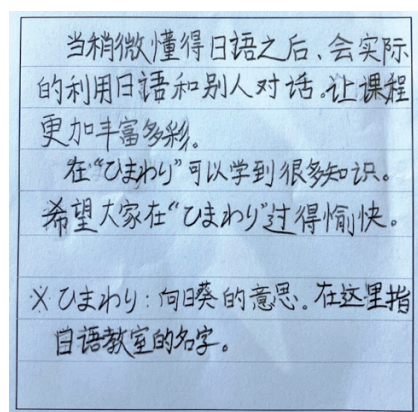 当稍微懂得日语之后、会实际
的利用日语和别人对话。让课程
更加丰富多彩。
在“ひまわり”可以学到很多知识。
希望大家在“ひまわり”过得愉快。
※ひまわり:向日葵的意思。在这里指
日语教室的名字。